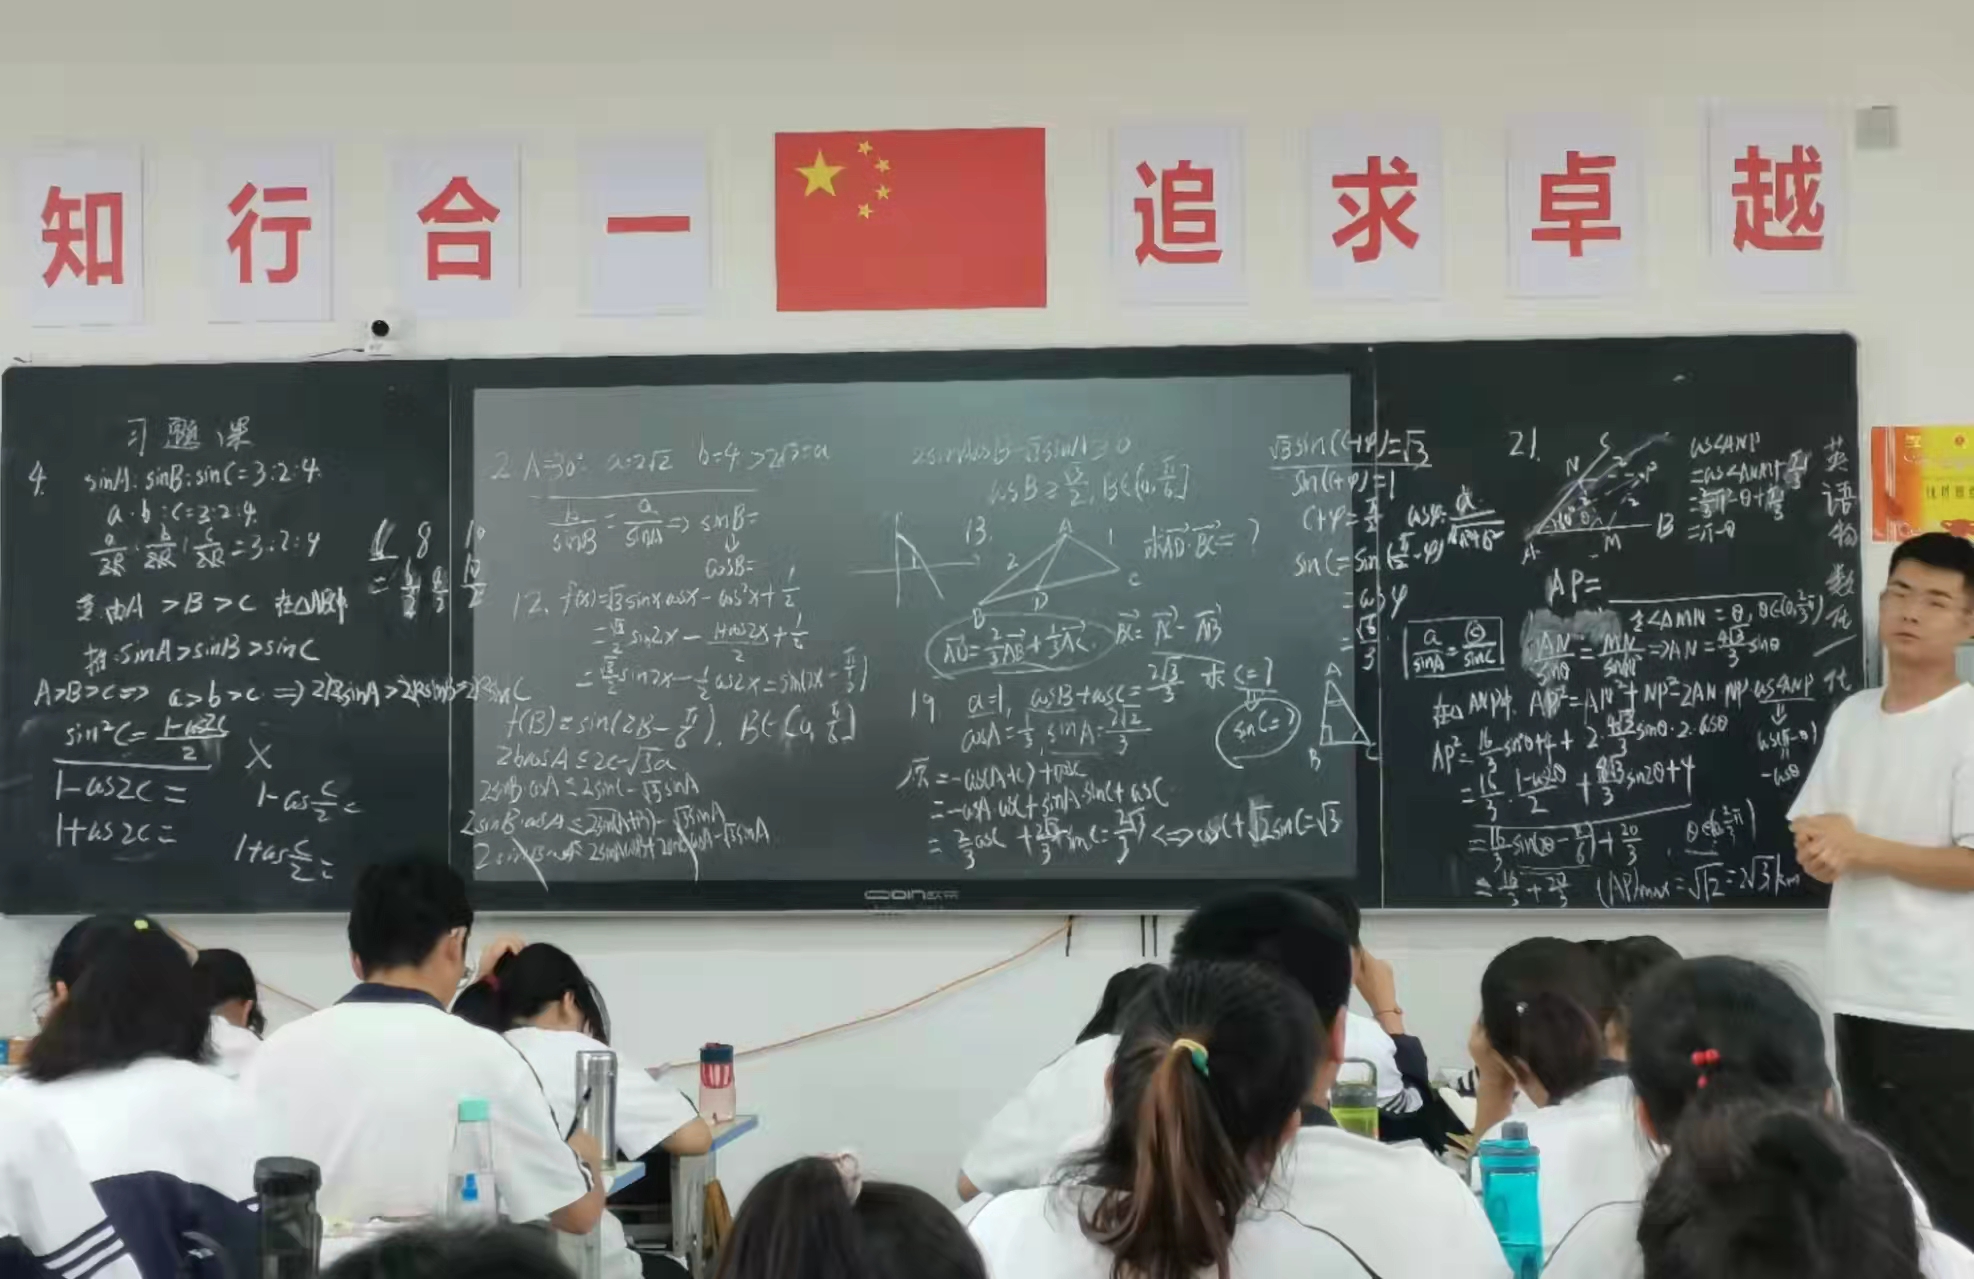 知行合一 追求卓越
习题课
4. sinA:sinB:sinC=3:2:4.
a:b:c=3:2:4.
a/2R : b/2R : c/2R = 3:2:4
A>B>C
sinA>sinB>sinC
A>B>C => a>b>c => 2RsinA>2RsinB>2RsinC
sin²C = (1-cos2C)/2
1-cos2C=
1+cos2C=
X
1-cos C/2 =
1+cos C/2 =
2 A=30° a=2√2
b/sinB = a/sinA => sinB=
cosB=
12. f(x)=√3sinxcosx-cos²x+1/2
= √3/2 sin2x - (1+cos2x)/2 + 1/2
= √3/2 sin2x - 1/2 cos2x = sin(2x-π/6)
f(B)=sin(2B-π/6), B∈(0, π/6]
2bcosA≤2c-√3a
2sinB·cosA≤2sinC-√3sinA
2sinB·cosA≤2sin(A+B)-√3sinA
cosB≥√3/2, B∈(0, π/6]
13.
A
2
1
B
D
C
求AD·BC=?
AD=2/3AB+1/3AC.
BC=AC-AB
19. a=1, cosB+cosC=2√3/3 求c=?
cosA=1/3, sinA=2√2/3
sinC=?
A
B
C
原=-cos(A+C)+cosC
=-cosA·cosC+sinA·sinC+cosC
=2/3cosC+2√2/3sinC=2√3/3 <=> cosC+√2sinC=√3
√3sin(C+φ)=√3
sin(C+φ)=1
C+φ=π/2
sinC=sin(π/2-φ)
=cosφ
a/sinA = c/sinC
21.
S
N
P
A
M
B
=π-θ
AP=
令<AMN=θ, θ∈(0, 2/3π)
=> AN=4√3/3 sinθ
AP²=AN²+NP²-2AN·NP·cos<ANP
cos(π-θ)
-cosθ
AP²=16/3 sin²θ+4+2·4√3/3 sinθ·2·cosθ
=16/3·(1-cos2θ)/2+
sin2θ+4
=16/3 sin(2θ-π/6)+20/3
=16/3+20/3 (AP)max=√12=2√3km
英
语
物
数
化